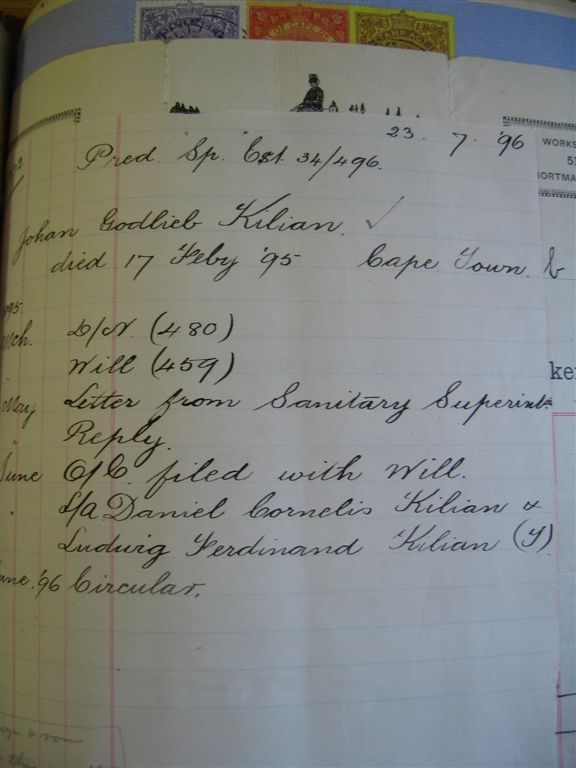 OF CAPE OF
STAMP ACT
WORKS
51
23. 7. '96
Pred. Sp. Est 34/496.
Johan Godlieb Kilian. ✓
died 17 Feby '95 Cape Town.
D/N. (480)
Will (459)
May Letter from Sanitary Superint
Reply.
June O/C. filed with Will.
" L/A Daniel Cornelis Kilian &
Ludwig Ferdinand Kilian (T)
une. '96 Circular.
ke